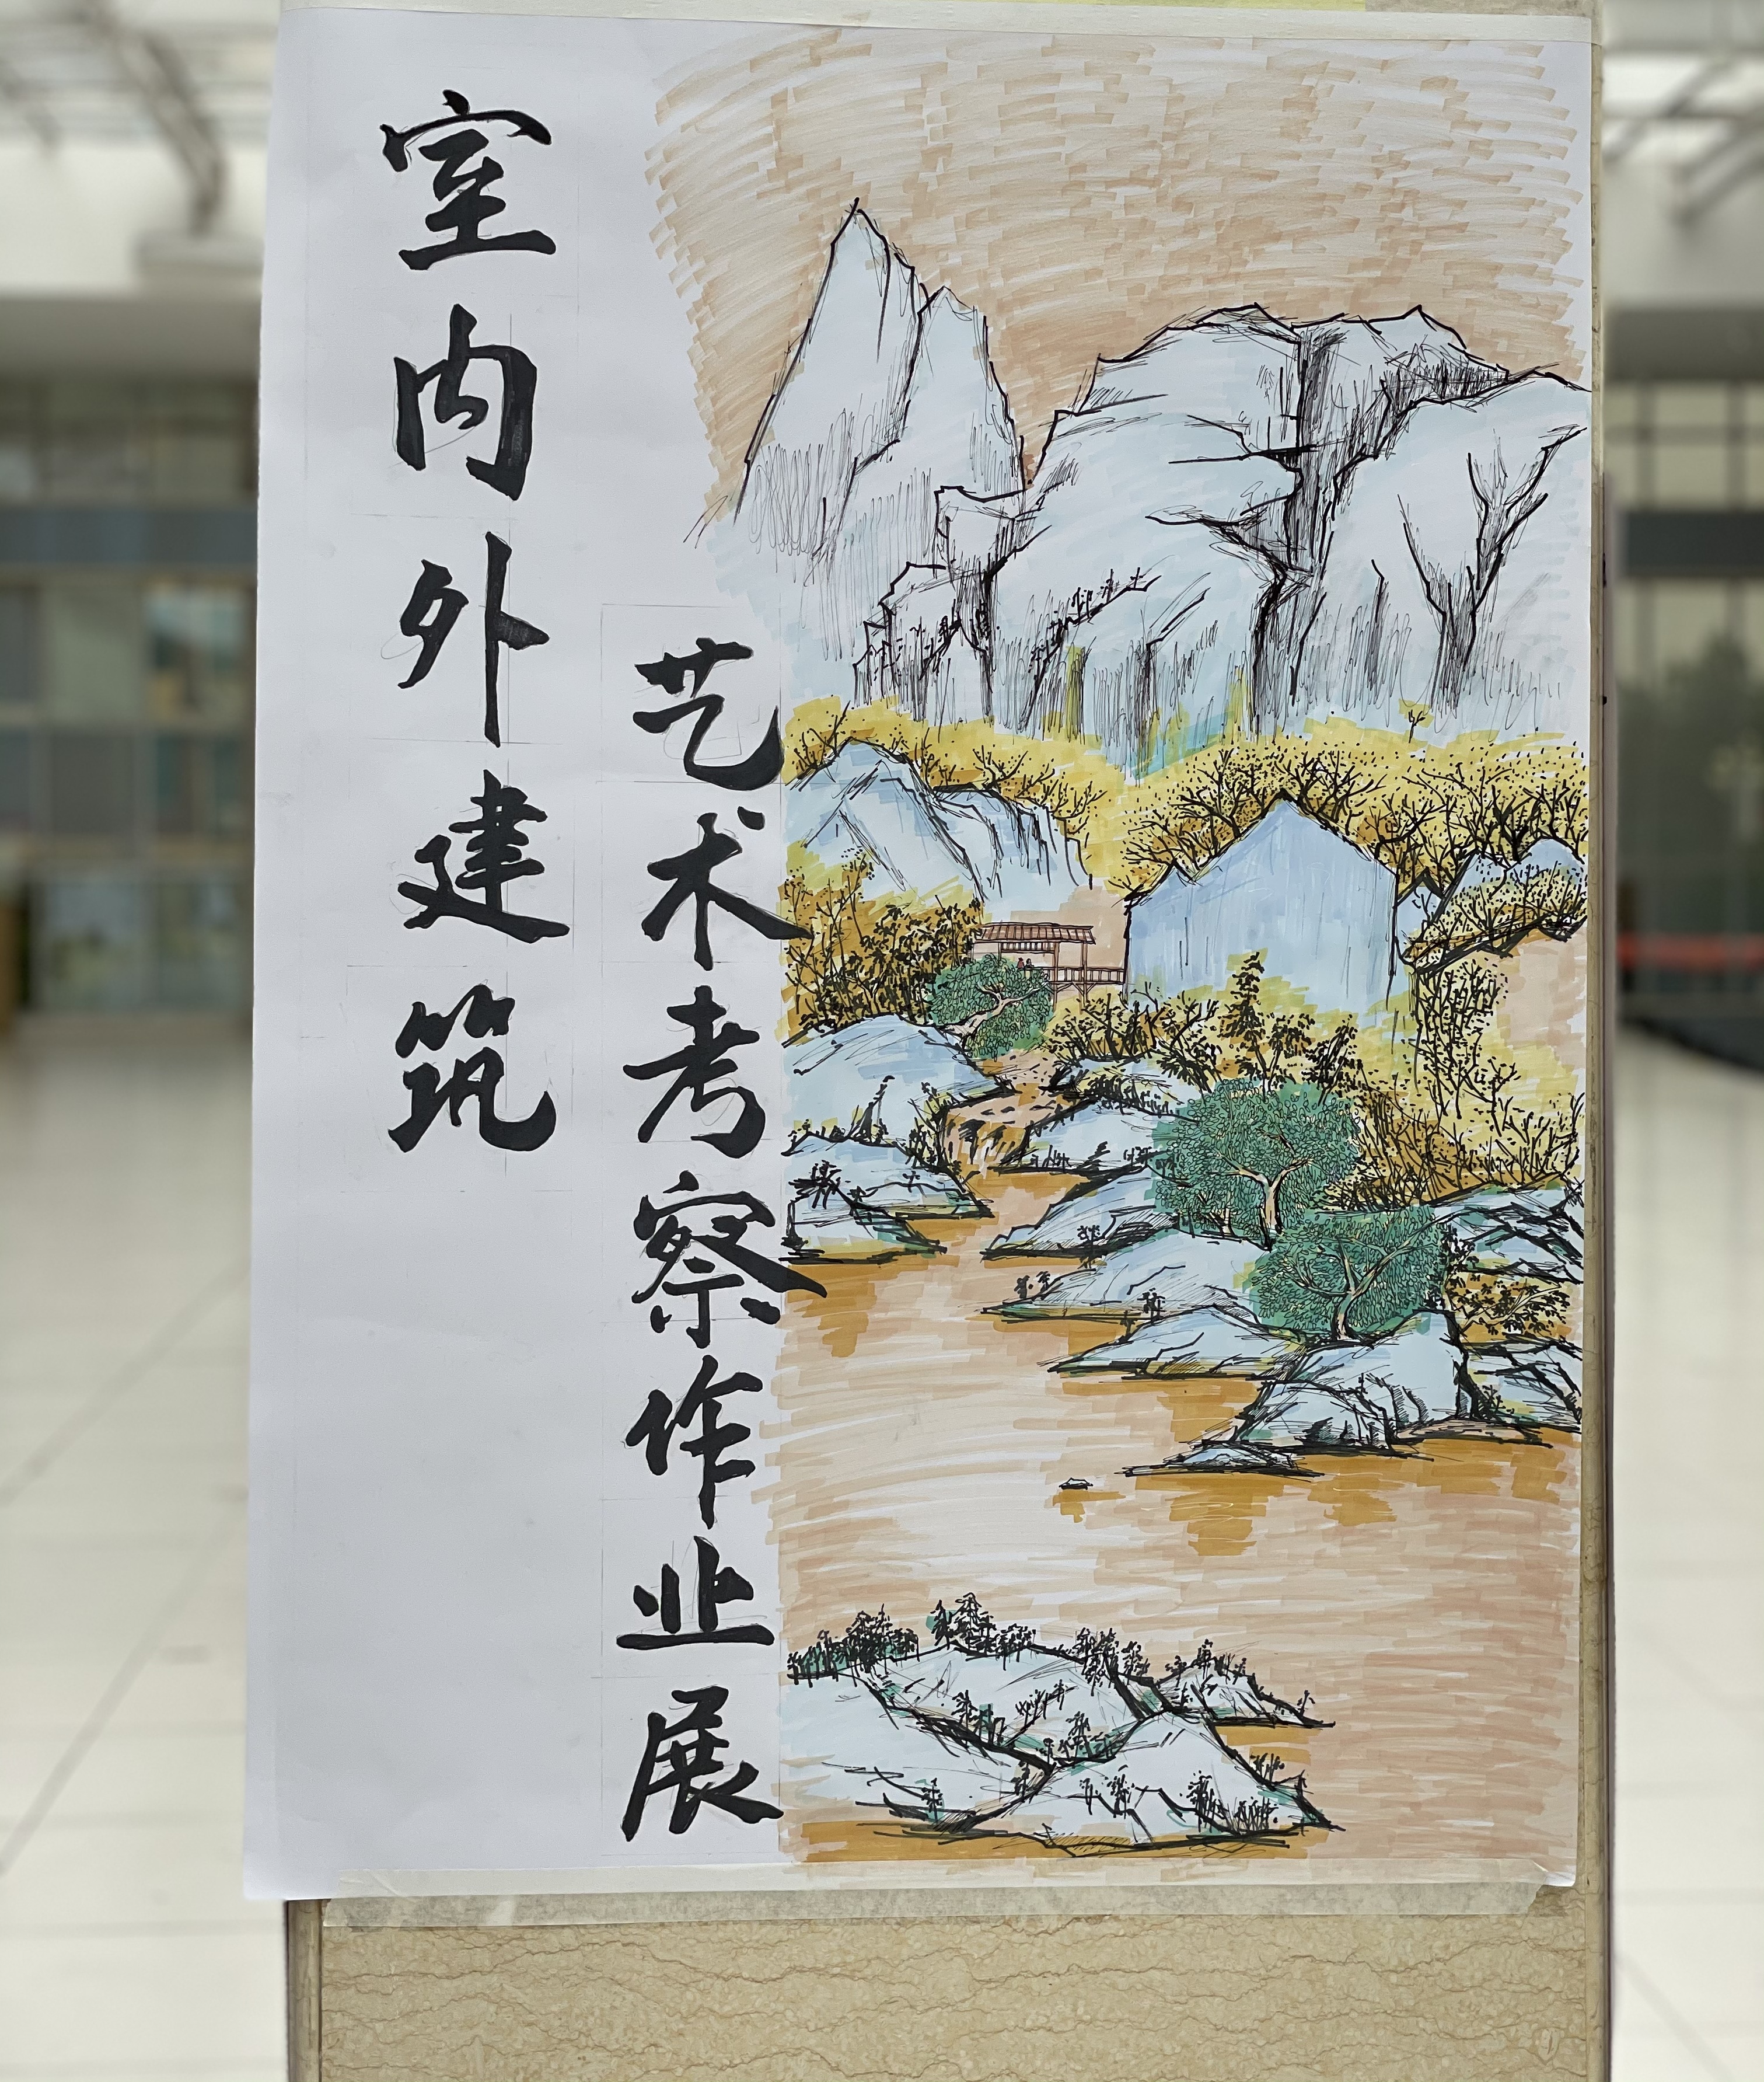 室内外建筑
艺术考察作业展